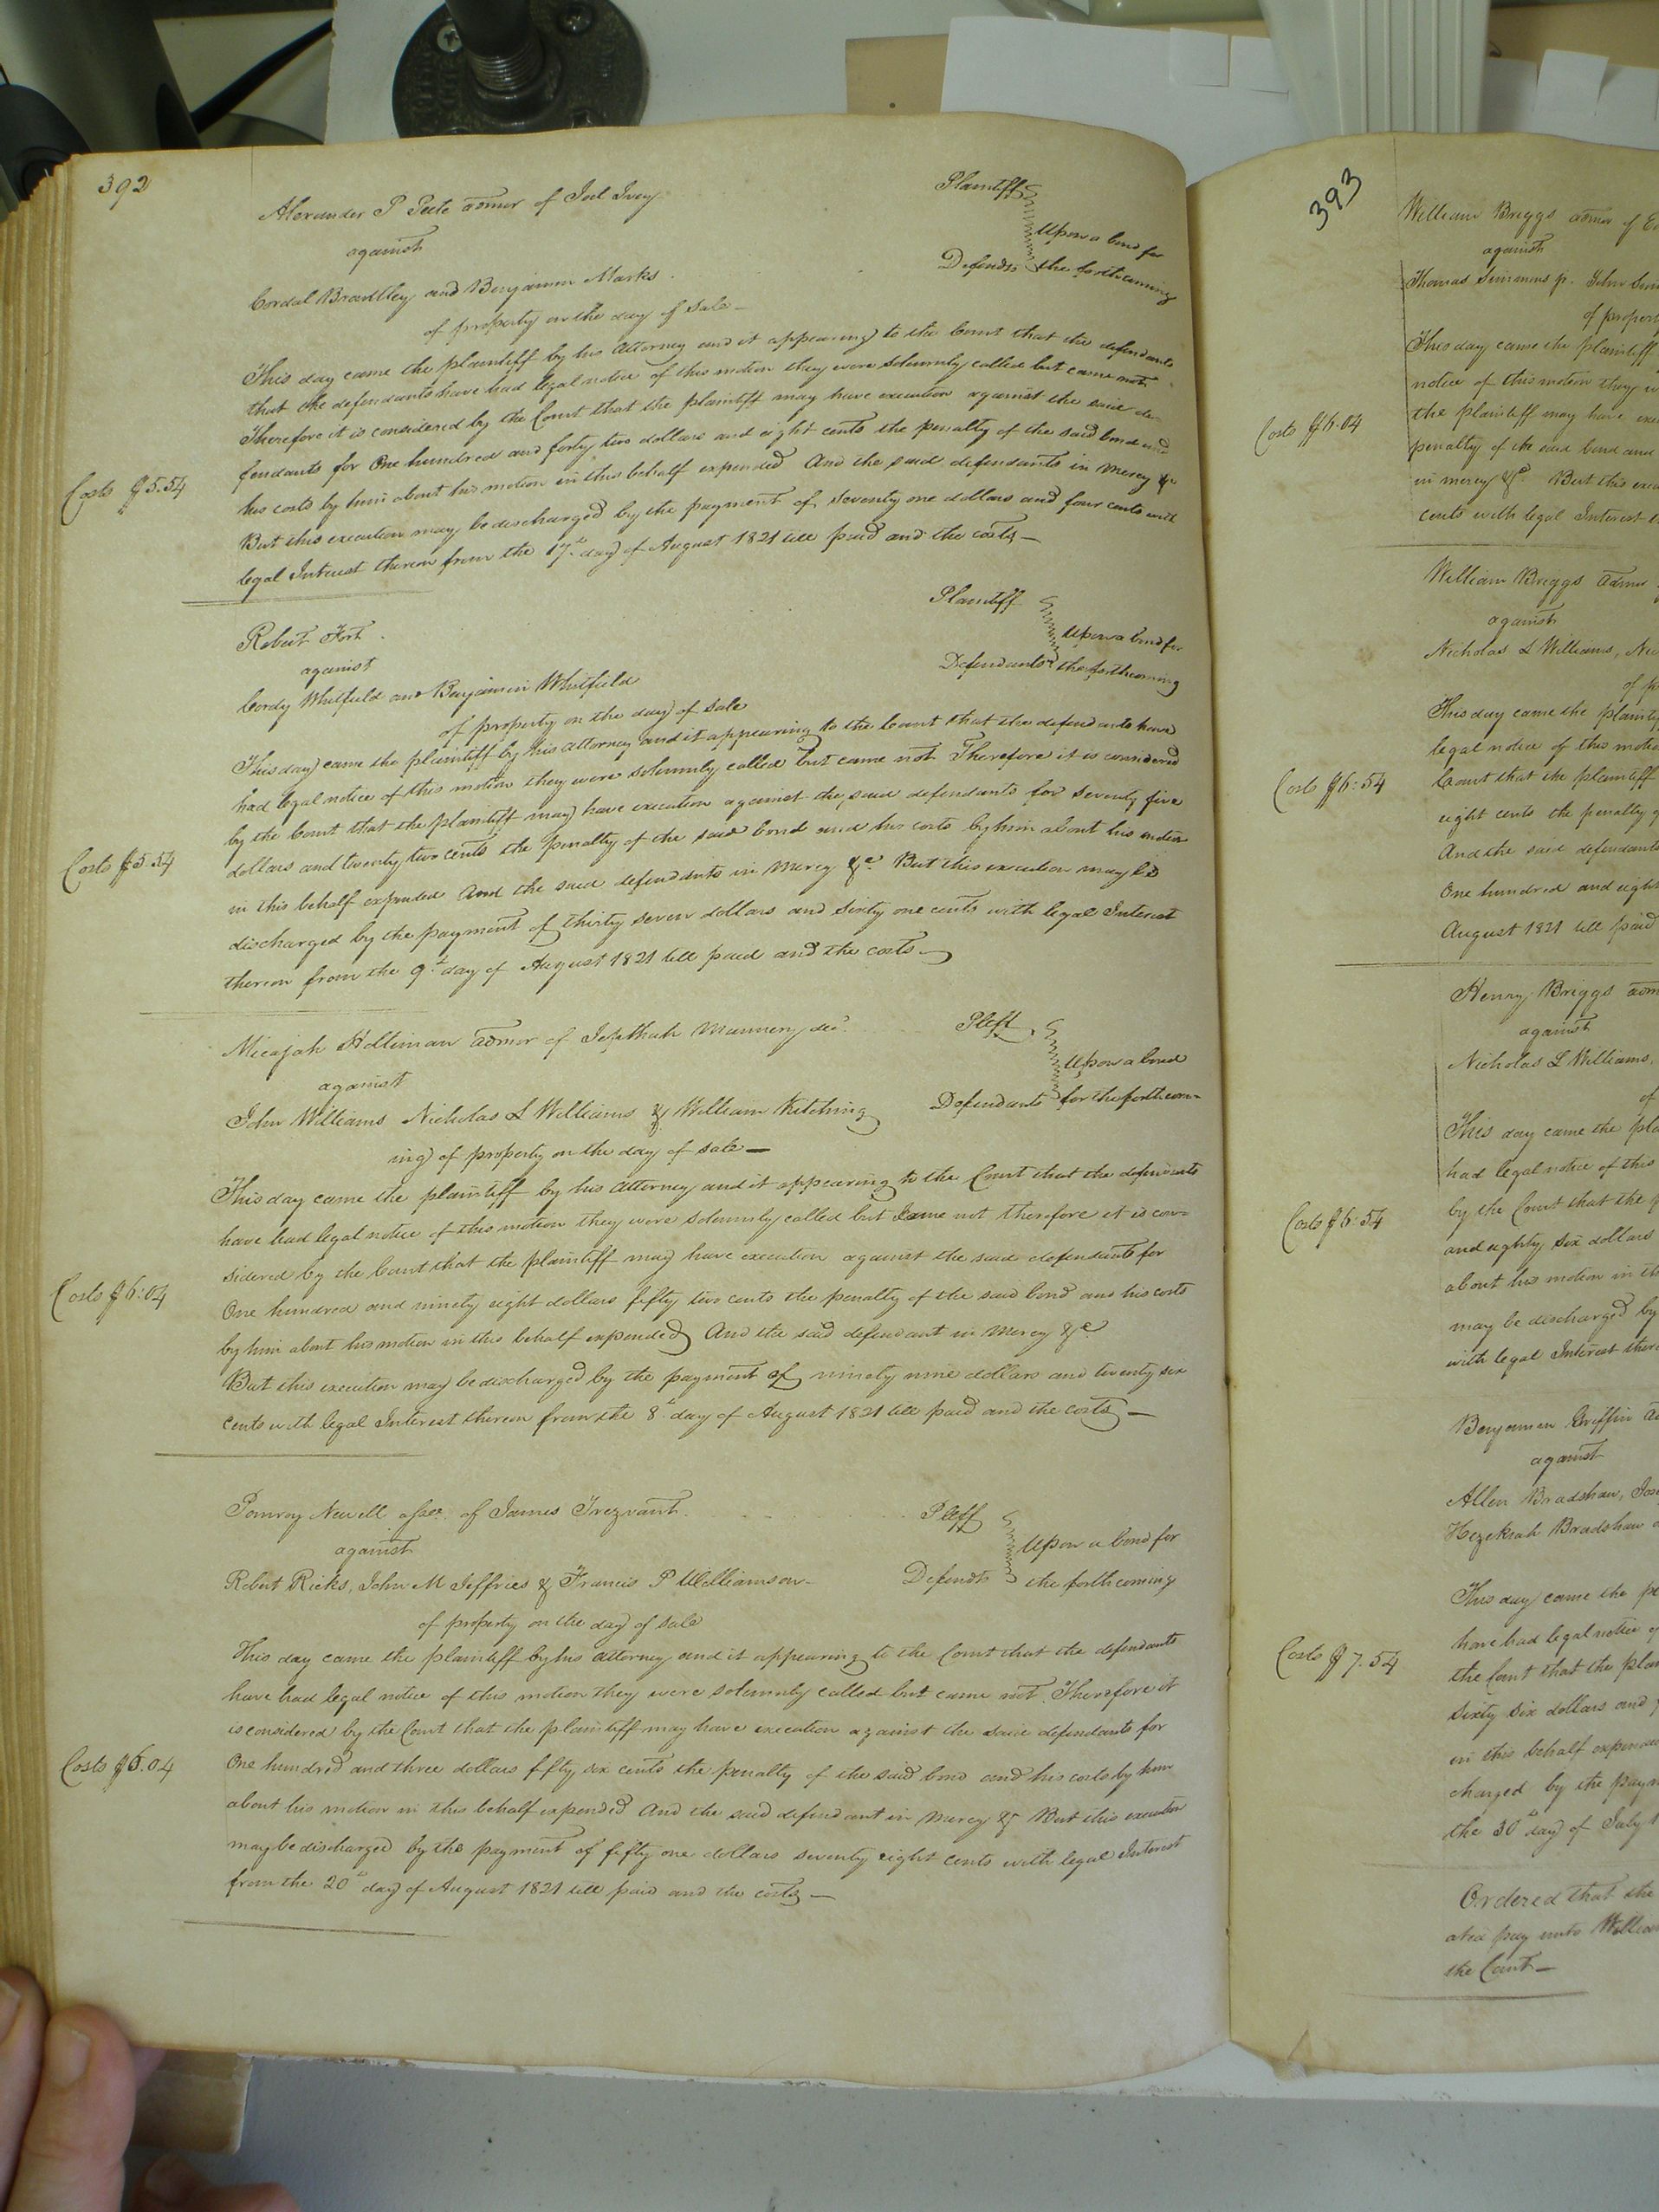 392
Alexander P Peete admor of Joel Ivey Plaintiff
against Upon a bond for
Cordal Brantley and Benjamin Marks. Defendts the forthcoming
of property on the day of sale —
This day came the plaintiff by his attorney and it appearing to the Court that the defendants
that the defendants have had legal notice of this motion they were solemnly called but came not
Therefore it is considered by the Court that the plaintiff may have execution against the said de-
fendants for One hundred and forty two dollars and eight cents the penalty of the said bond and
Costs $5.54
his costs by him about his motion in this behalf expended And the said defendants in Mercy &c
But this execution may be discharged by the payment of seventy one dollars and four cents with
legal Interest thereon from the 17th day of August 1821 till paid and the costs —
Robert Fort. Plaintiff
against Upon a bond for
Cordy Whitfield and Benjamin Whitfield Defendants the forthcoming
of property on the day of sale
This day came the plaintiff by his attorney and it appearing to the Court that the defendants have
had legal notice of this motion they were solemnly called but came not Therefore it is considered
by the Court that the plaintiff may have execution against the said defendants for seventy five
dollars and twenty two cents the penalty of the said bond and his costs by him about his motion
Costs $5.54
in this behalf expended And the said defendants in Mercy &c. But this execution may be
discharged by the payment of thirty seven dollars and sixty one cents with legal Interest
thereon from the 9th day of August 1821 till paid and the costs —
Micajah Holliman admor of Jepthah Mannery dec. Pleff
against Upon a bond
John Williams Nicholas L Williams & William Kitching Defendants for the forthcom-
ing of property on the day of sale —
This day came the plaintiff by his attorney and it appearing to the Court that the defendants
have had legal notice of this motion they were solemnly called but came not therefore it is con-
sidered by the Court that the plaintiff may have execution against the said defendants for
Costs $6:04
One hundred and ninety eight dollars fifty two cents the penalty of the said bond and his costs
by him about his motion in this behalf expended And the said defendant in Mercy &c
But this execution may be discharged by the payment of ninety nine dollars and twenty six
cents with legal Interest thereon from the 8th day of August 1821 till paid and the costs —
Pomroy Newell assee. of James Trezvant. Pleff
against Upon a bond for
Robert Ricks, John M Jeffries & Francis P Williamson — Defendts the forthcoming
of property on the day of sale
This day came the plaintiff by his attorney and it appearing to the Court that the defendants
have had legal notice of this motion they were solemnly called but came not. Therefore it
is considered by the Court that the plaintiff may have execution against the said defendants for
Costs $6.04
One hundred and three dollars fifty six cents the penalty of the said bond and his costs by him
about his motion in this behalf expended And the said defendant in Mercy & But this execution
may be discharged by the payment of fifty one dollars seventy eight cents with legal Interest
from the 20th day of August 1821 till paid and the costs —
393
William Briggs admor of
against
Thomas Simmons jr. John
of
This day came the plaintiff
notice of this motion they
Costs $6.04
the plaintiff may have
penalty of the said bond and
in mercy &c. But this
cents with legal Interest
William Briggs admor
against
Nicholas L Williams,
of
This day came the
legal notice of this
Costs $6:54
Court that the plaintiff
eight cents the penalty
And the said defendants
One hundred and eight
August 1821 till paid
Henry Briggs
against
Nicholas L Williams.
of
This day came the
had legal notice of this
Costs $6:54
by the Court that the
and eighty six dollars
about his motion in
may be discharged by
with legal Interest
Benjamin Griffin
against
Allen Bradshaw,
Hezekiah Bradshaw
This day came the
have had legal notice
Costs $7.54
the Court that the
sixty six dollars and
in this behalf
charged by the
the 30th day of July
Ordered that the
pay unto
the Court —